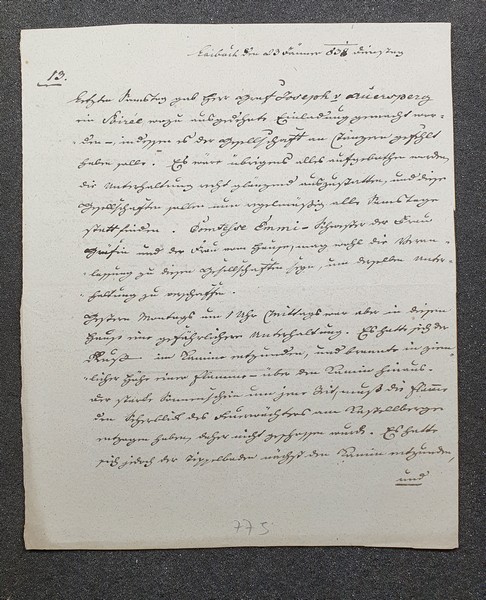 Laibach den 23 Jänner 838 Dienstag
13.
Letzten Samstag gab Herr Graf Joseph v Auersperg
ein Soirée wozu ausgedehnte Einladung gemacht wor-
den –, indessen es der Gesellschaft an Tänzern gefehlt
haben solle. Es wäre übrigens alles aufgebothen worden,
die Unterhaltung recht glänzend auszustatten, und diese
Gesellschaften sollen nun regelmäßig alle Samstage
statt finden. Comtesse Emmi – Schwester der Frau
Gräfin und der Frau vom Hause, mag wohl die Veran-
lassung zu diesen Gesellschaften seyn, um derselben Unter-
haltung zu verschaffen.
Gestern Montags um 1 Uhr Mittags war aber in diesem
Hause eine gefährlichere Unterhaltung. Es hatte sich der
Ruß im Kamine entzünden, und brannte in ziem-
licher Höhe einer Flamme über den Kamin hinaus.
Der starke Sonnenschein um jene Zeit, muß die Flamme
dem Scherblick des Feuerwächters am Kastellberge
entzogen haben, daher nicht geschossen wurde. Es hatte
sich jedoch der Tippelboden nächst dem Kamin entzunden,
und
775